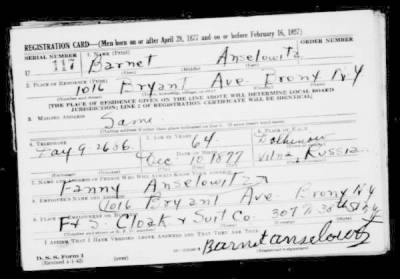 REGISTRATION CARD—(Men born on or after April 28, 1877 and on or before February 16, 1897)
SERIAL NUMBER 1. NAME (Print) ORDER NUMBER
U 117 Barnet Anselowitz
2. PLACE OF RESIDENCE (Print)
1016 Bryant Ave Bronx N.Y
[THE PLACE OF RESIDENCE GIVEN ON THE LINE ABOVE WILL DETERMINE LOCAL BOARD
JURISDICTION; LINE 2 OF REGISTRATION CERTIFICATE WILL BE IDENTICAL]
3. MAILING ADDRESS
Same
4. TELEPHONE 5. AGE IN YEARS 6. PLACE OF BIRTH
64
Day 9-2636 Dec 10 1877 Vilna, Russia
7. NAME AND ADDRESS OF PERSON WHO WILL ALWAYS KNOW YOUR ADDRESS
Fanny Anselowitz
1016 Bryant Ave Bronx N.Y
8. EMPLOYER'S NAME AND ADDRESS
Cloak & Suit Co.
I AFFIRM THAT I HAVE VERIFIED ABOVE ANSWERS AND THAT THEY ARE TRUE.
D. S. S. Form 1
(Revised 4-1-42)
Barnet anselowitz